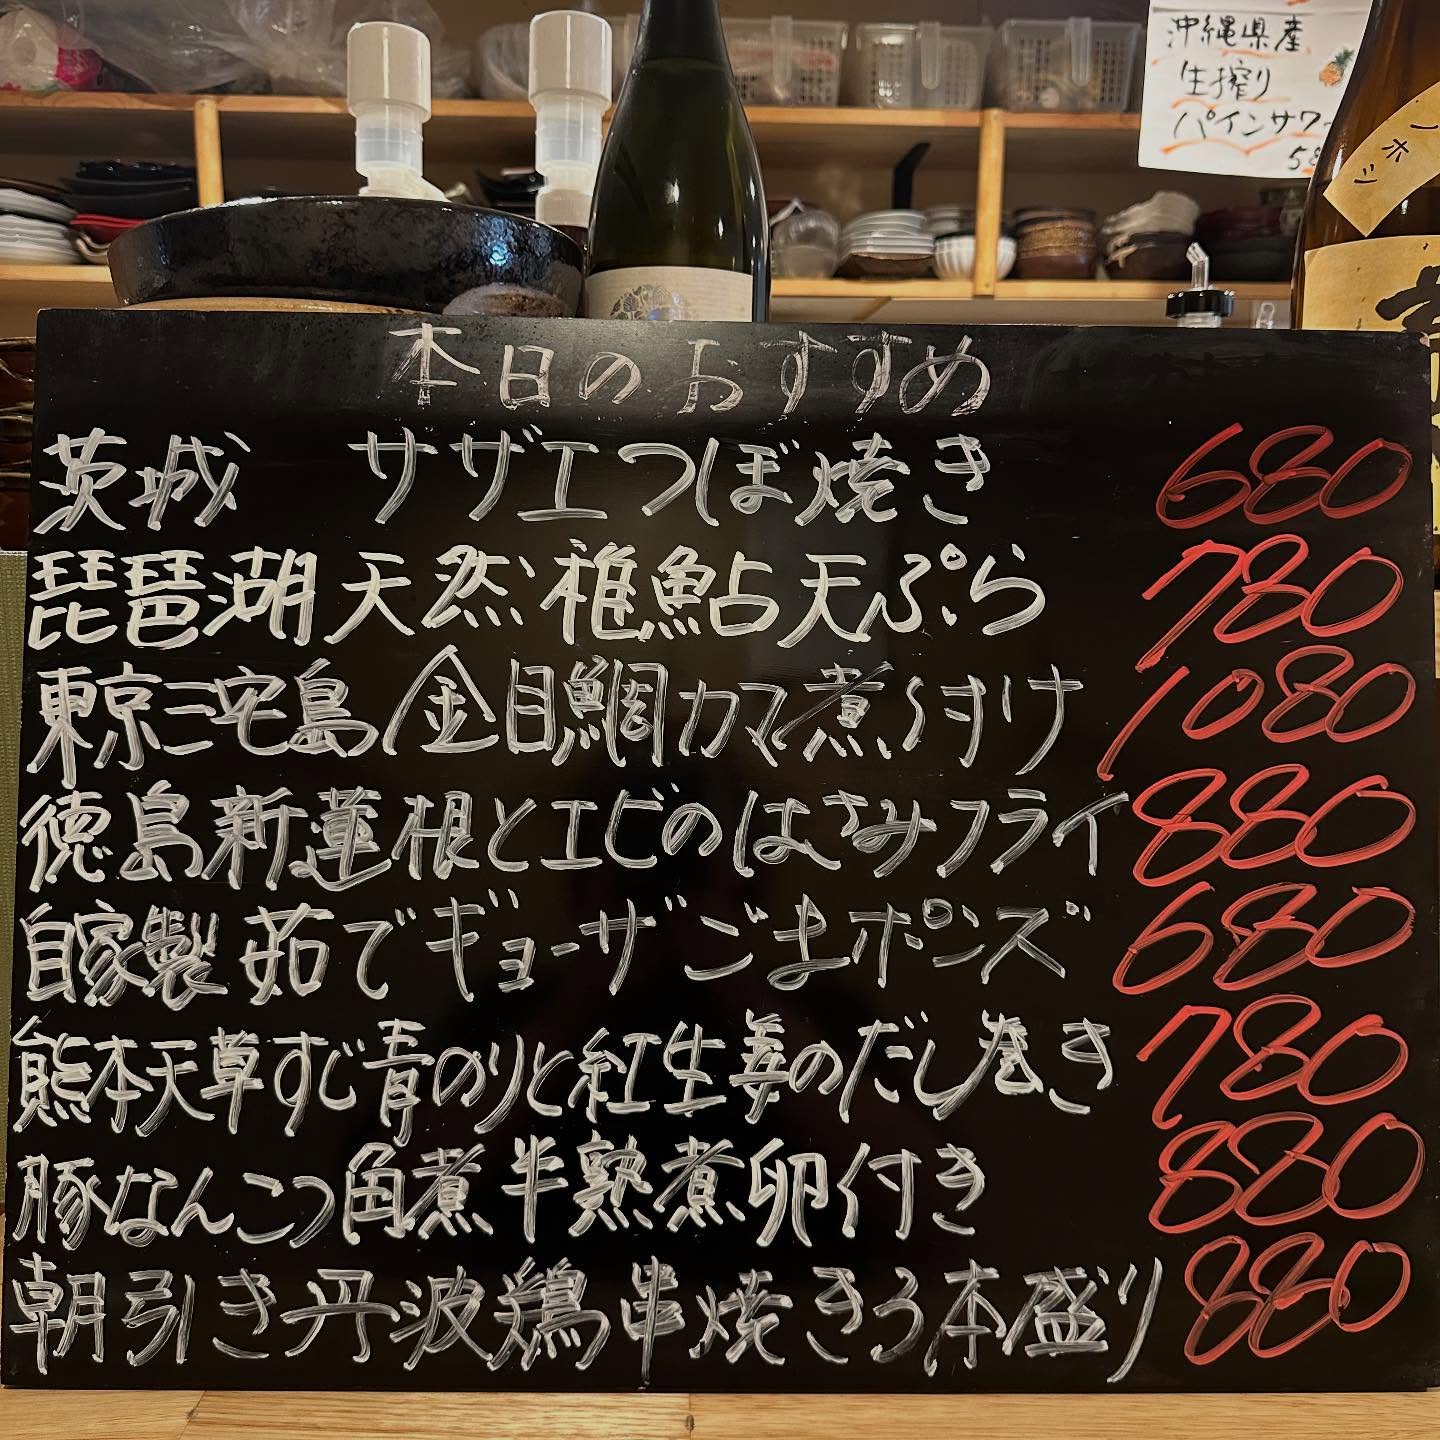 沖縄県産
生搾り
パインサワー
本日のおすすめ
茨城 サザエつぼ焼き 680
琵琶湖天然稚鮎天ぷら 780
東京三宅島金目鯛カマ煮付け 1080
徳島新蓮根とエビのはさみフライ 880
自家製茹でギョーザごまポンズ 680
熊本天草すじ青のりと紅生姜のだし巻き 780
豚なんこつ角煮半熟煮卵付き 880
朝引き丹波鶏串焼き3本盛り 880